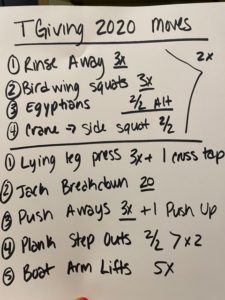 TGiving 2020 Moves
① Rinse Away 3x
② Birdwing squats 3x
③ Egyptians 2/2 Alt
④ Crane → side squat 2/2
2x
① Lying leg press 3x + 1 cross tap
② Jack Breakdown 20
③ Push Aways 3x + 1 Push Up
④ Plank Step Outs 2/2 > x2
⑤ Boat Arm Lifts 5x